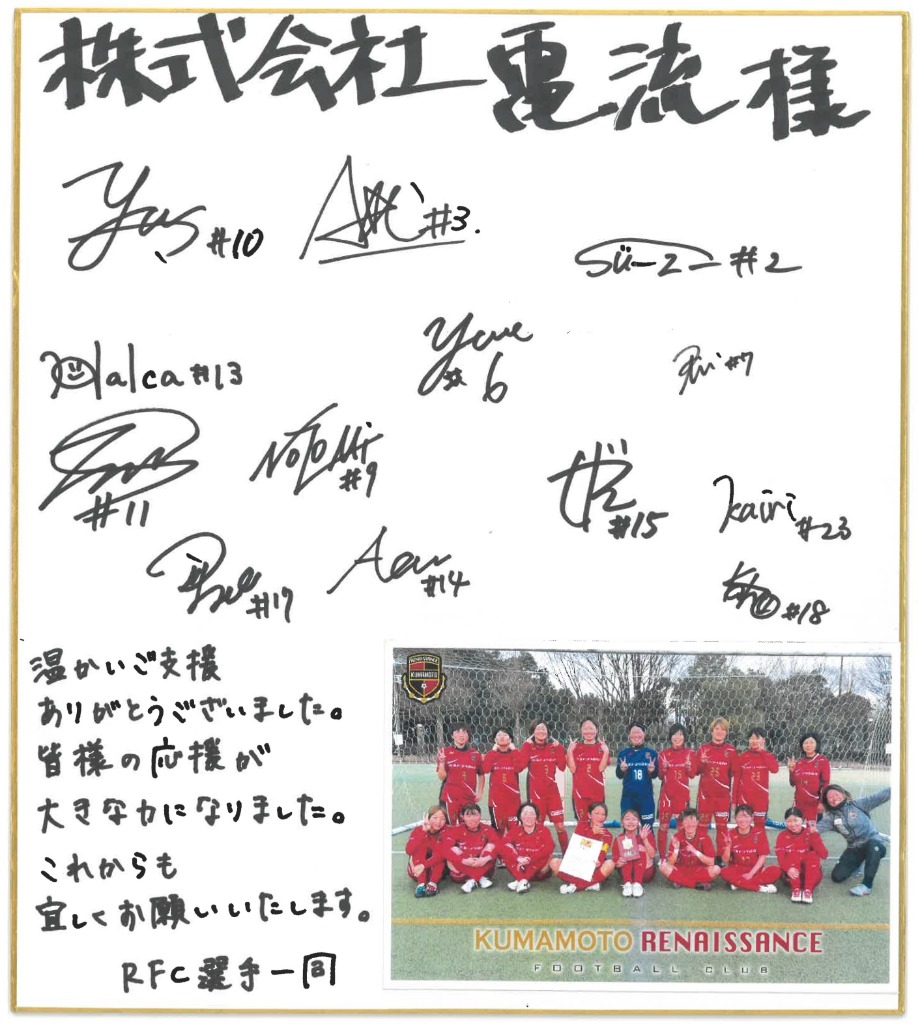 株式会社 電流 様
#10
#3.
#2
alca #13
Yume
#6
#7
NOZOMI
#9
#11
#15
kairi
#23
#17
#14
#18
温かいご支援
ありがとうございました。
皆様の応援が
大きな力になりました。
これからも
宜しくお願いいたします。
RFC選手一同
RENAISSANCE
KUMAMOTO
18
KUMAMOTO RENAISSANCE
FOOTBALL CLUB